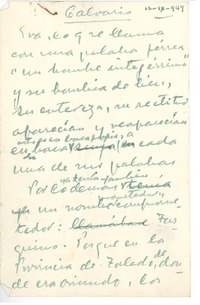 Calvario
12-IX-949
Era, lo q se llama
con una palabra férrea
"un hombre integérrimo" y
su hombría de bien,
su entereza, su rectitud
aparecían y reaparecían
en cada
una de sus palabras
Por lo demás
un nombre
tador: llamábase Tar
quino. Porque en la
Provincia de Toledo, de don
de era oriundo, los